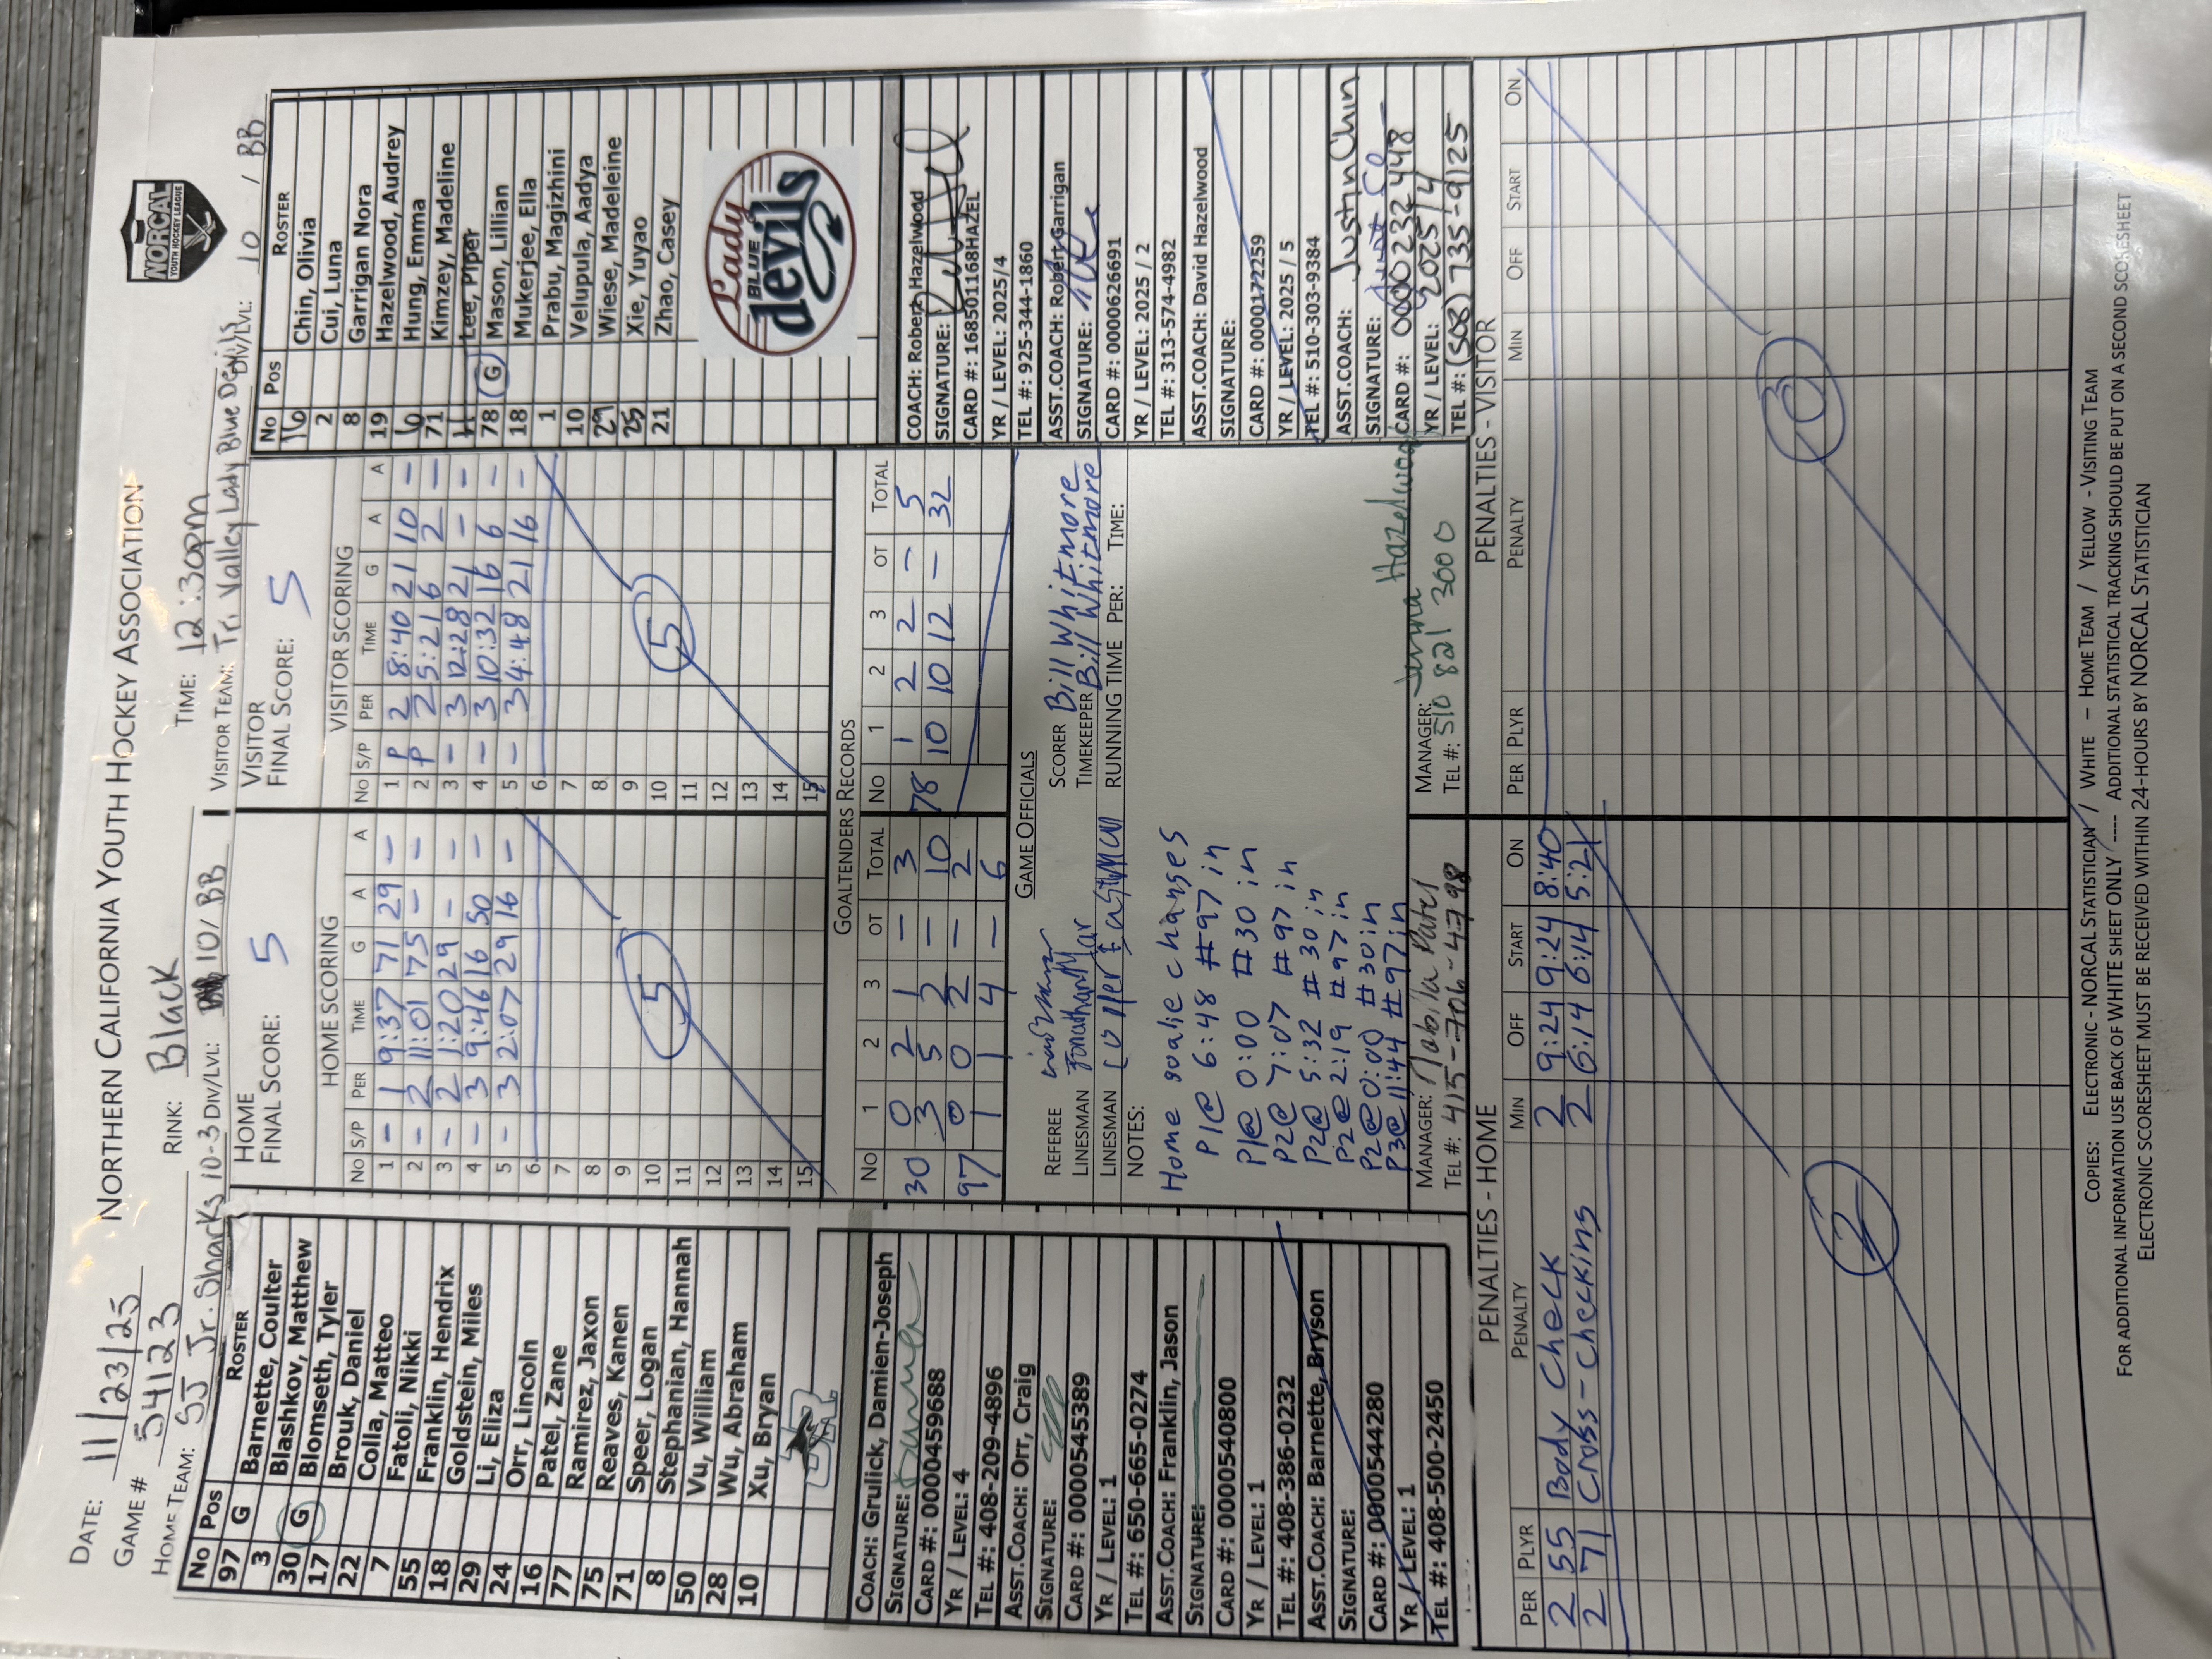 DATE: 11/23/25 NORTHERN CALIFORNIA YOUTH HOCKEY ASSOCIATION
NORCAL
YOUTH HOCKEY LEAGUE
GAME # 54123 RINK: Black TIME: 12:30pm
HOME TEAM: SJ Jr. Sharks 10-3 DIV/LVL: 10/BB VISITOR TEAM: Tri Valley Lady Blue Devils DIV/LVL: 10 / BB
No Pos ROSTER
97 G Barnette, Coulter
3 Blashkov, Matthew
30 G Blomseth, Tyler
17 Brouk, Daniel
22 Colla, Matteo
7 Fatoli, Nikki
55 Franklin, Hendrix
18 Goldstein, Miles
29 Li, Eliza
24 Orr, Lincoln
16 Patel, Zane
77 Ramirez, Jaxon
75 Reaves, Kanen
71 Speer, Logan
8 Stephanian, Hannah
50 Vu, William
28 Wu, Abraham
10 Xu, Bryan
COACH: Grulick, Damien-Joseph
SIGNATURE:
CARD #: 0000459688
YR / LEVEL: 4
TEL #: 408-209-4896
ASST.COACH: Orr, Craig
SIGNATURE:
CARD #: 0000545389
YR / LEVEL: 1
TEL #: 650-665-0274
ASST.COACH: Franklin, Jason
SIGNATURE:
CARD #: 0000540800
YR / LEVEL: 1
TEL #: 408-386-0232
ASST.COACH: Barnette, Bryson
SIGNATURE:
CARD #: 0000544280
YR / LEVEL: 1
TEL #: 408-500-2450
HOME
FINAL SCORE: 5
HOME SCORING
NO S/P PER TIME G A A
1 - 1 9:37 71 29 -
2 - 2 11:01 75 - -
3 - 2 1:20 29 - -
4 - 3 9:46 16 50 -
5 - 3 2:07 29 16 -
6
7
8
9
10
11
12
13
14
15
5
VISITOR
FINAL SCORE: 5
VISITOR SCORING
NO S/P PER TIME G A A
1 P 2 8:40 21 10 -
2 P 2 5:21 6 2 -
3 - 3 12:28 21 - -
4 - 3 10:32 16 6 -
5 - 3 4:48 21 16 -
6
7
8
9
10
11
12
13
14
15
5
GOALTENDERS RECORDS
NO 1 2 3 OT TOTAL NO 1 2 3 OT TOTAL
30 0 2 1 - 3 78 1 2 2 - 5
3 5 2 - 10 10 10 12 - 32
97 0 0 2 - 2
1 1 4 - 6
GAME OFFICIALS
REFEREE SCORER Bill Whitmore
LINESMAN TIMEKEEPER Bill Whitmore
LINESMAN RUNNING TIME PER: TIME:
NOTES:
Home goalie changes
P1@ 6:48 #97 in
P1@ 0:00 #30 in
P2@ 7:07 #97 in
P2@ 5:32 #30 in
P2@ 2:19 #97 in
P2@ 0:00 #30 in
P3@ 11:44 #97 in
MANAGER: Nabila Patel
TEL #: 415-706-4798
MANAGER: Jenna Hazelwood
TEL #: 510 821 3000
No Pos ROSTER
16 Chin, Olivia
2 Cui, Luna
8 Garrigan Nora
19 Hazelwood, Audrey
6 Hung, Emma
71 Kimzey, Madeline
Lee, Piper
78 G Mason, Lillian
18 Mukerjee, Ella
1 Prabu, Magizhini
10 Velupula, Aadya
29 Wiese, Madeleine
25 Xie, Yuyao
21 Zhao, Casey
Lady
BLUE
devils
COACH: Robert Hazelwood
SIGNATURE:
CARD #: 168501168HAZEL
YR / LEVEL: 2025/4
TEL #: 925-344-1860
ASST.COACH: Robert Garrigan
SIGNATURE:
CARD #: 0000626691
YR / LEVEL: 2025 / 2
TEL #: 313-574-4982
ASST.COACH: David Hazelwood
SIGNATURE:
CARD #: 0000172259
YR / LEVEL: 2025 / 5
TEL #: 510-303-9384
ASST.COACH: Justin Chin
SIGNATURE:
CARD #: 0000232448
YR / LEVEL: 2025/4
TEL #: (508) 735-9125
PENALTIES - HOME
PER PLYR PENALTY MIN OFF START ON
2 55 Body Check 2 9:24 9:24 8:40
2 71 Cross-checking 2 6:14 6:14 5:21
2
PENALTIES - VISITOR
PER PLYR PENALTY MIN OFF START ON
0
COPIES: ELECTRONIC - NORCAL STATISTICIAN / WHITE - HOME TEAM / YELLOW - VISITING TEAM
FOR ADDITIONAL INFORMATION USE BACK OF WHITE SHEET ONLY ---- ADDITIONAL STATISTICAL TRACKING SHOULD BE PUT ON A SECOND SCORESHEET
ELECTRONIC SCORESHEET MUST BE RECEIVED WITHIN 24-HOURS BY NORCAL STATISTICIAN